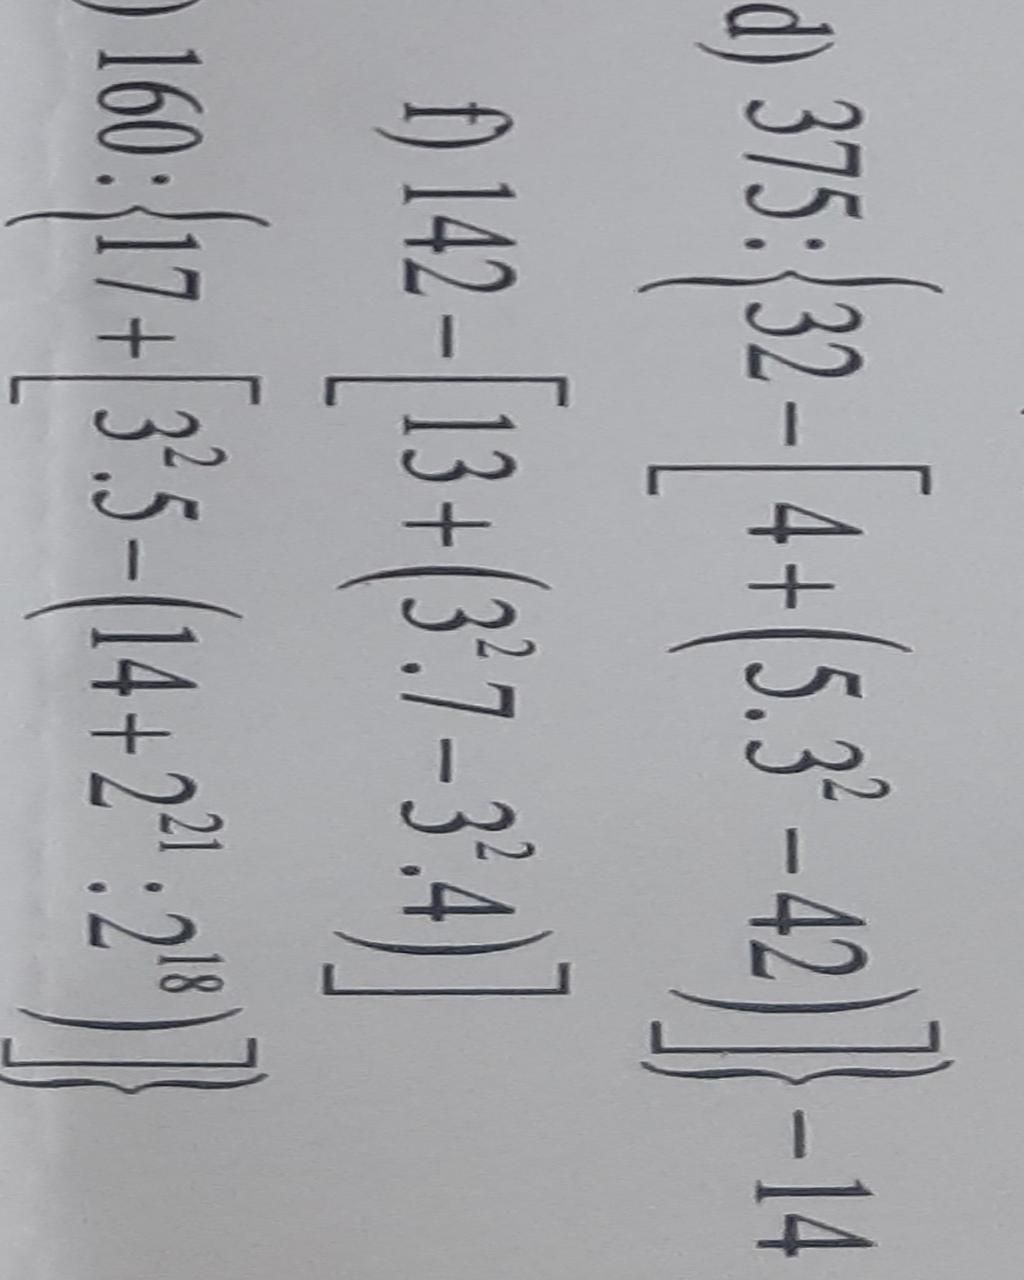 d) 375:{32-[4+(5.3²-42)]}-14
f) 142-[13+(3².7-3².4)]
) 160:{17+[3².5-(14+2²¹:2¹⁸)]}